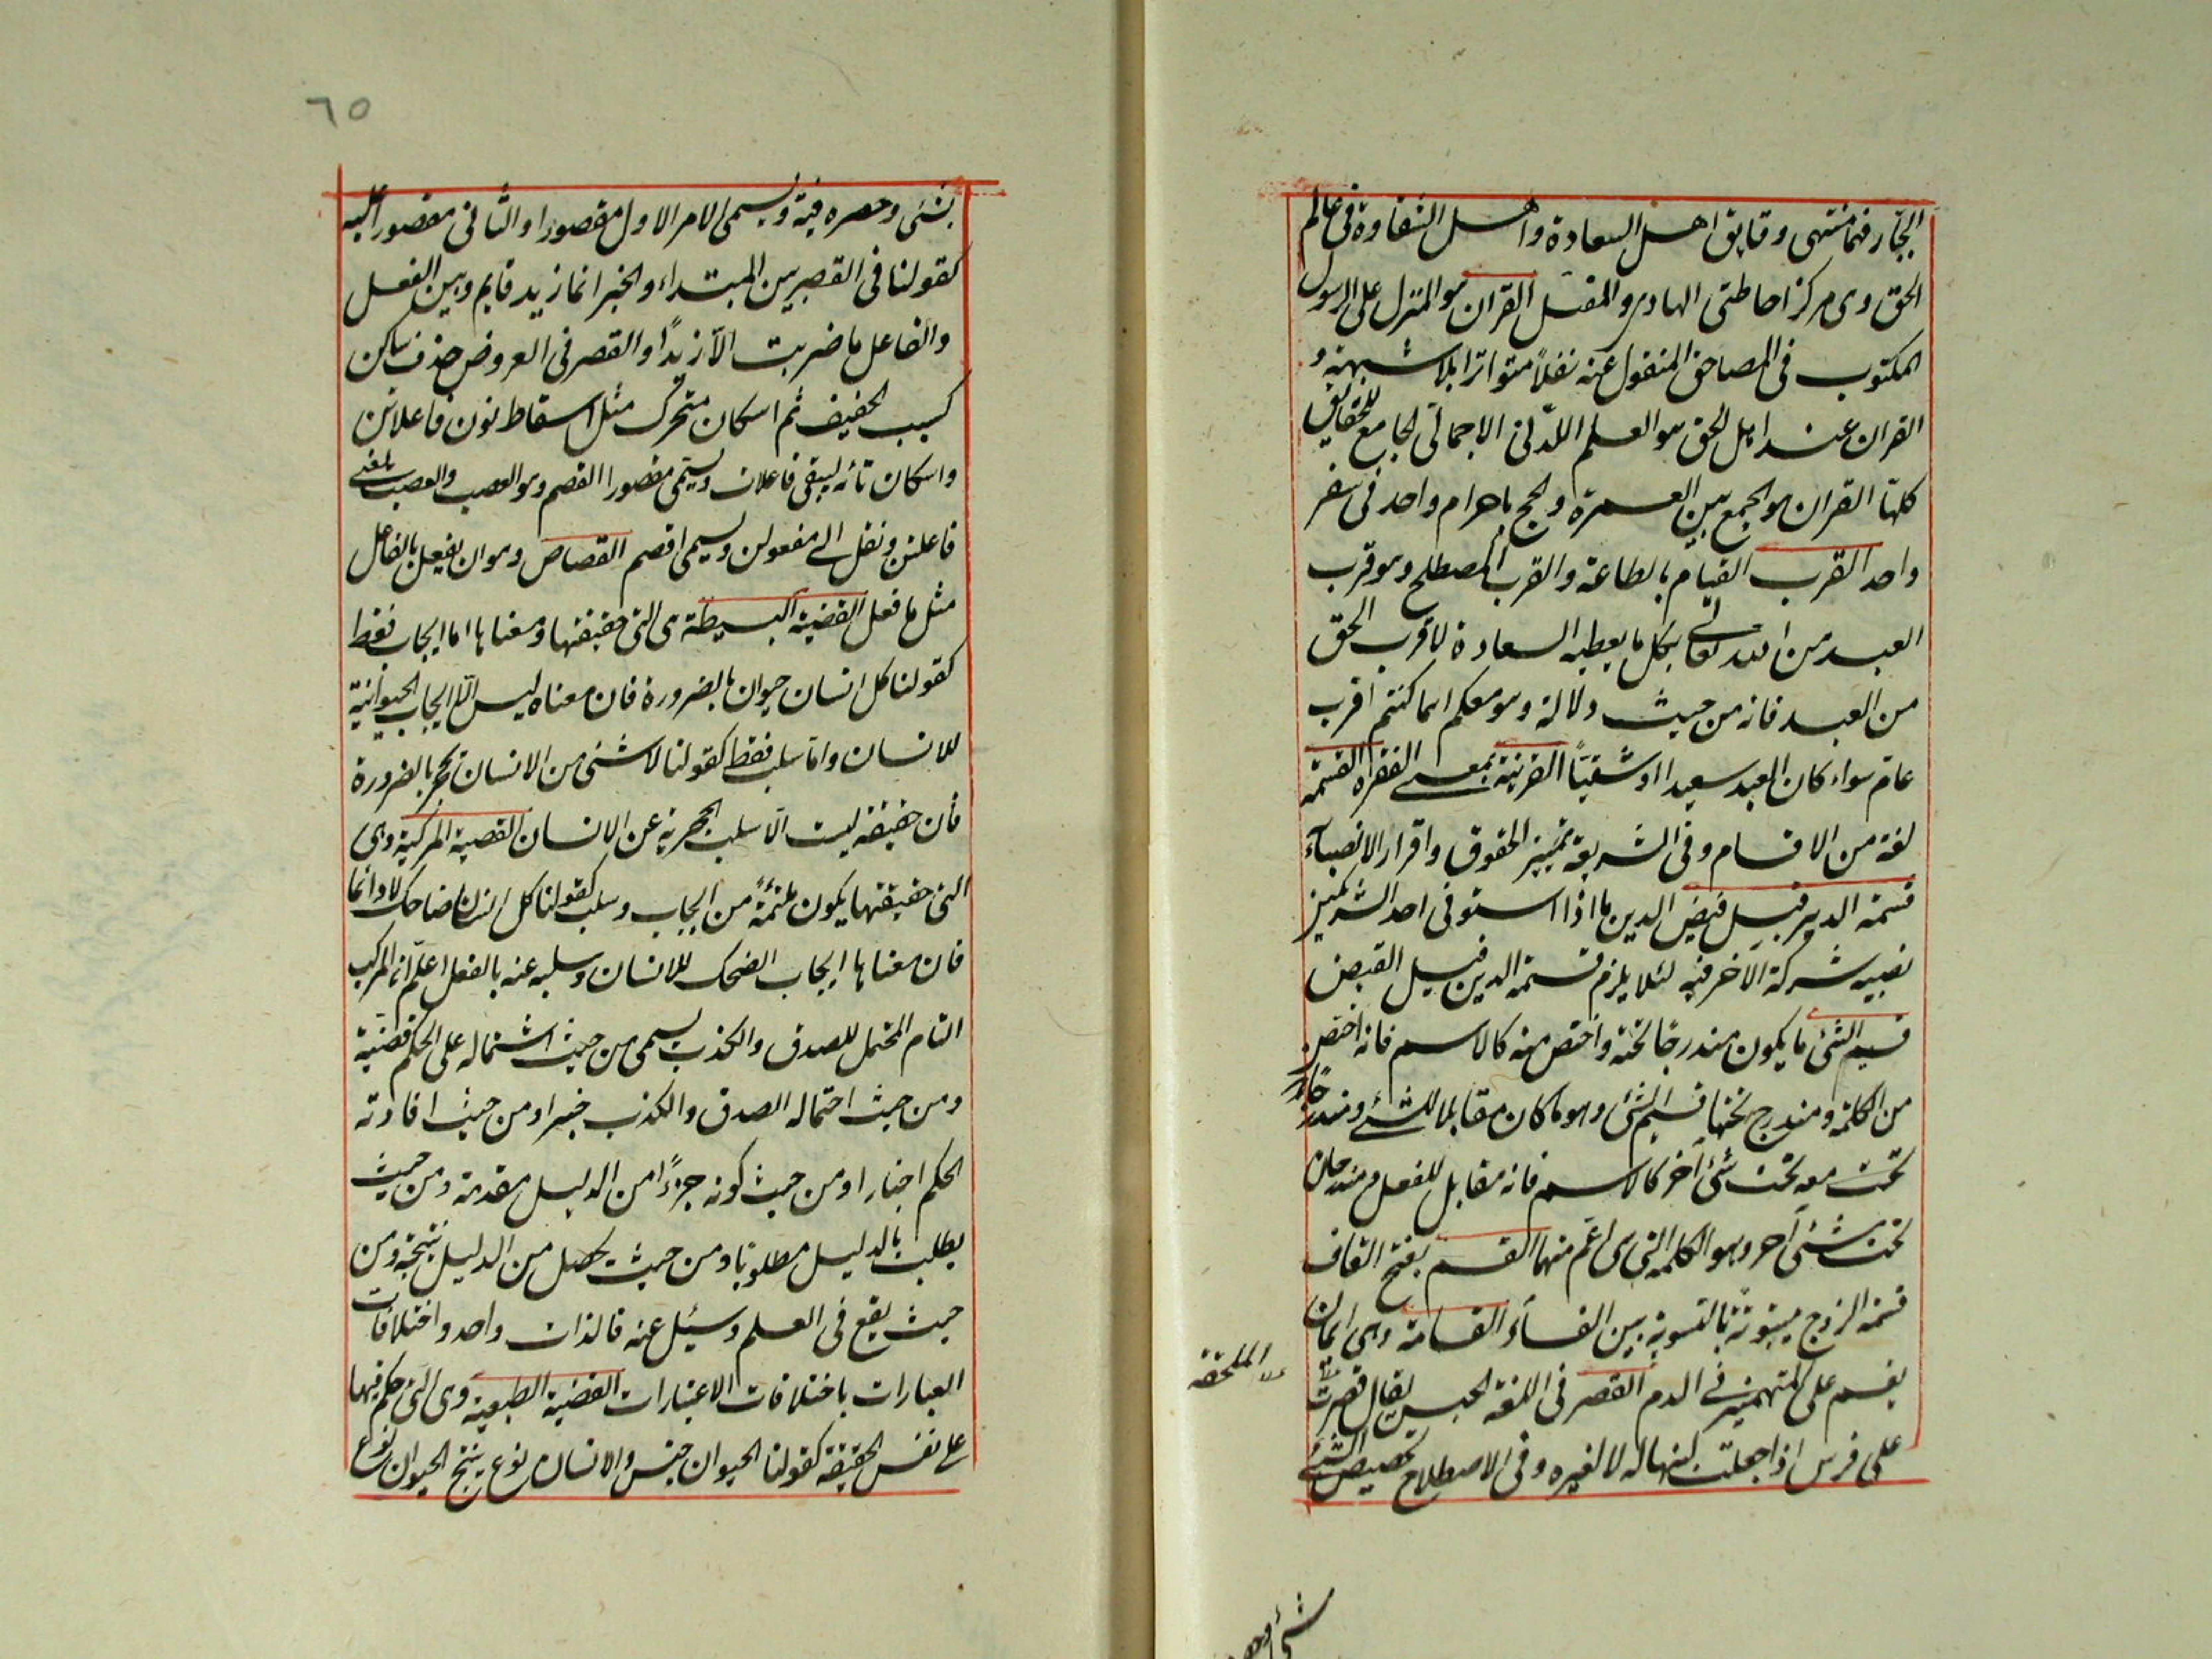 الجبار فهما منتهى رقايق اهل السعادة واهل الشقاوة فى عالم
الحق وهى مركز احاطتى الهادى والمضل القران هو المنزل على الرسول
المكتوب فى المصاحف المنقول عنه نقلاً متواترا بلا شبهة و
القران عند اهل الحق هو العلم اللدنى الاجمالى الجامع للحقايق
كلها القران هو الجمع بين العمرة والحج باحرام واحد فى سفر
واحد القرب القيام بالطاعة والقرب المصطلح وهو قرب
العبد من الله تعالى بكل ما يعطيه السعادة لا قرب الحق
من العبد فانه من حيث دلالة وهو معكم اينما كنتم اقرب
عام سواء كان العبد سعيدا او شقياً القرينة بمعنى الفقرة القسمة
لغة من الاقسام وفى الشريعة تمييز الحقوق واقرار الانصباء
قسمة الدين قبل قبض الدين ما اذا استوفى احد الشريكين
نصيبه شركة الآخر فيه لئلا يلزم قسمة الدين قبل القبض
قسيم الشئ ما يكون مندرجا تحته واخص منه كالاسم فانه اخص
من الكلمة ومندرج تحتها قسيم الشئ وهو ما كان مقابلا للشئ ومندرجا
تحت معه تحت شئ آخر كالاسم فانه مقابل للفعل ومندرجان
تحت شئ آخر وهو الكلمة التى هى اعم منهما القسم بفتح القاف
قسمة الزوج بيتوتة بالتسوية بين النساء القسامة وهى ايمان
يقسم على المتهمين فى الدم القصر فى اللغة الحبس يقال قصرت
الملحقة
على فرس اذا جعلت لبنها له لا لغيره وفى الاصطلاح تخصيص الشئ
شئ وحصره
٦٥
بشئ وحصره فيه ويسمى الامر الاول مقصورا والثانى مقصورا عليه
كقولنا فى القصر بين المبتداء والخبر انما زيد قايم وبين الفعل
والفاعل ما ضربت الا زيداً والقصر فى العروض حذف ساكن
كسبب الخفيف ثم اسكان متحرك مثل اسقاط نون فاعلاتن
واسكان تائه ليبقى فاعلات ويسمى مقصورا القصم وهو العصب والعصب
فاعلتن ونقل الى مفعولن ويسمى اقصم القصاص وهو ان يفعل بالفاعل
مثل ما فعل القضية البسيطة هى التى حقيقتها ومعناها اما ايجاب فقط
كقولنا كل انسان حيوان بالضرورة فان معناه ليس الا ايجاب الحيوانية
للانسان واما سلب فقط كقولنا لا شئ من الانسان بحجر بالضرورة
فأن حقيقته ليست الا سلب الحجرية عن الانسان القضية المركبة وهى
التى حقيقتها يكون ملتئمة من ايجاب وسلب كقولنا كل انسان ضاحك لا دائما
فان معناها ايجاب الضحك للانسان وسلبه عنه بالفعل اعلم ان المركب
التام المحتمل للصدق والكذب يسمى من حيث اشتماله على الحكم قضية
ومن حيث احتماله الصدق والكذب خبرا ومن حيث افادته
الحكم اخبارا ومن حيث كونه جزءاً من الدليل مقدمة ومن حيث
يطلب بالدليل مطلوبا ومن حيث يحصل من الدليل نتيجة ومن
حيث يقع فى العلم وسئل عنه فالذات واحد واختلافات
العبارات باختلافات الاعتبارات القضية الطبعية وهى التى حكم فيها
على نفس الحقيقة كقولنا الحيوان جنس والانسان نوع ينتج الحيوان نوع